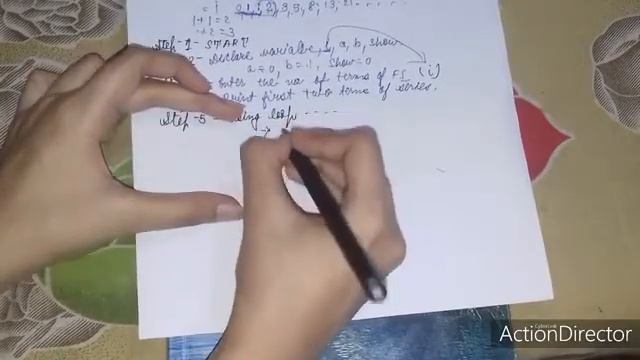 = 1 0, 1, 1, 2, 3, 5, 8, 13, 21
1+1=2
+2=3
Step-1- START
Declare variable i, a, b, show
a=0, b=1, show=0
Enter the no of terms of FS (i)
print first two terms of series.
Step-5 - Using loop ----
→
CyberLink
ActionDirector